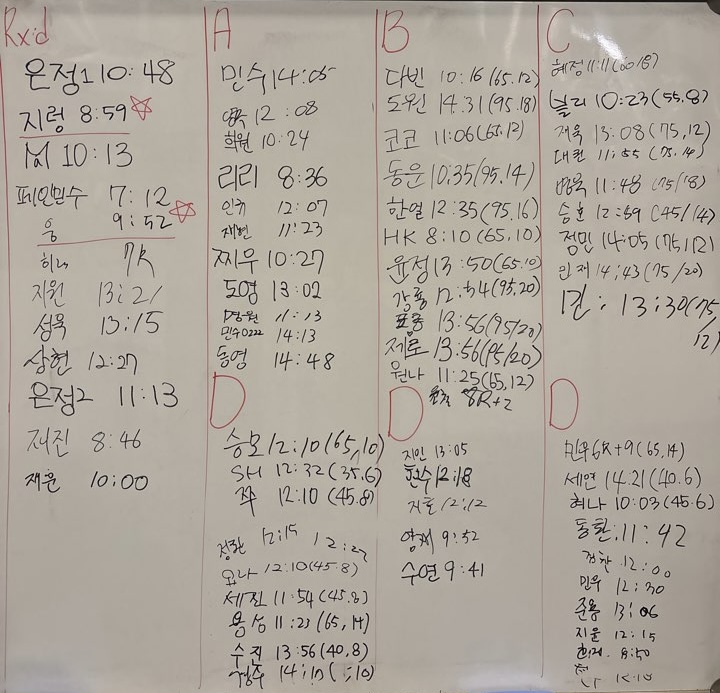 Rx'd
은정1 10:48
지렁 8:59
M 10:13
페인민수 7:12
웅 9:52
7R
지원 13:21
성욱 13:15
상현 12:27
은정2 11:13
재진 8:46
재윤 10:00
A
민수 14:05
12:08
희원 10:24
리리 8:36
인규 12:07
재현 11:23
찌우 10:27
도영 13:02
11:13
민수0222 14:13
동영 14:48
B
다빈 10:16(65.12)
도원 14:31(95.18)
코코 11:06(65.12)
동운 10:35(95.14)
한얼 12:35(95.16)
HK 8:10(65,10)
윤정 13:50(65.10)
강룡 12:54(95.20)
13:56(95/20)
제로 13:56(95/20)
원나 11:25(65,12)
8R+2
C
혜정 11:11
10:23(55.8)
재욱 13:08(75,12)
대원 11:55(75.14)
11:48(75/18)
승훈 12:59(45/14)
정민 14:05(75,12)
민재 14:43(75/20)
13:30(75/12)
D
승모 12:10(65,10)
SH 12:32(35.6)
쭈 12:10(45.8)
12:15 12:27
요나 12:10(45.8)
세진 11:54(45.8)
용성 11:23(65,14)
수진 13:56(40.8)
D
지인 13:05
12:18
12:12
9:52
수연 9:41
D
6R+9(65,14)
세연 14:21(40.6)
혜나 10:03(45.6)
동환 11:42
12:00
민우 12:30
준용 13:06
지윤 12:15
8:50